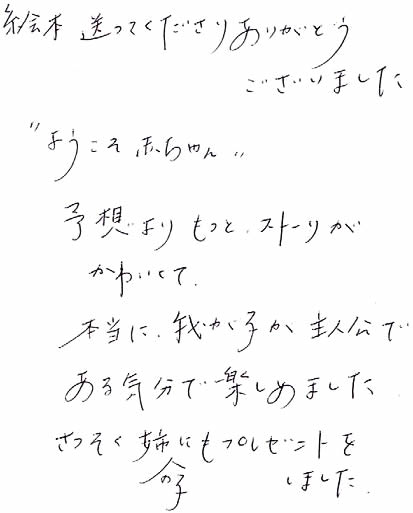 絵本 送ってくださりありがとう
ございました
"ようこそ赤ちゃん"
予想よりもっと、ストーリが
かわいくて、
本当に、我が子が主人公で
ある気分で楽しめました
さっそく姉にもプレゼントを
の子
しました。